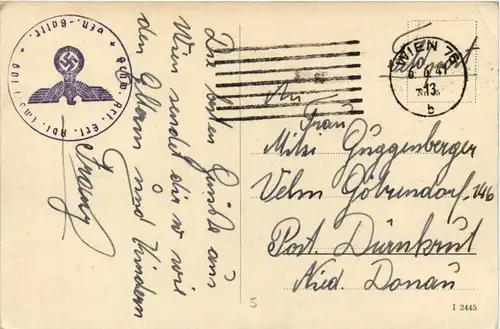 Die besten Grüße aus
Wien sendet dir so wie
den Eltern und Kindern
Franz
Feldpost
WIEN 76
6. 6. 41
13
b
An
Frau
Mitzi Guggenberger
Velm Götzendorf 146
Post. Dürnkrut
Nied. Donau
5
I 2445